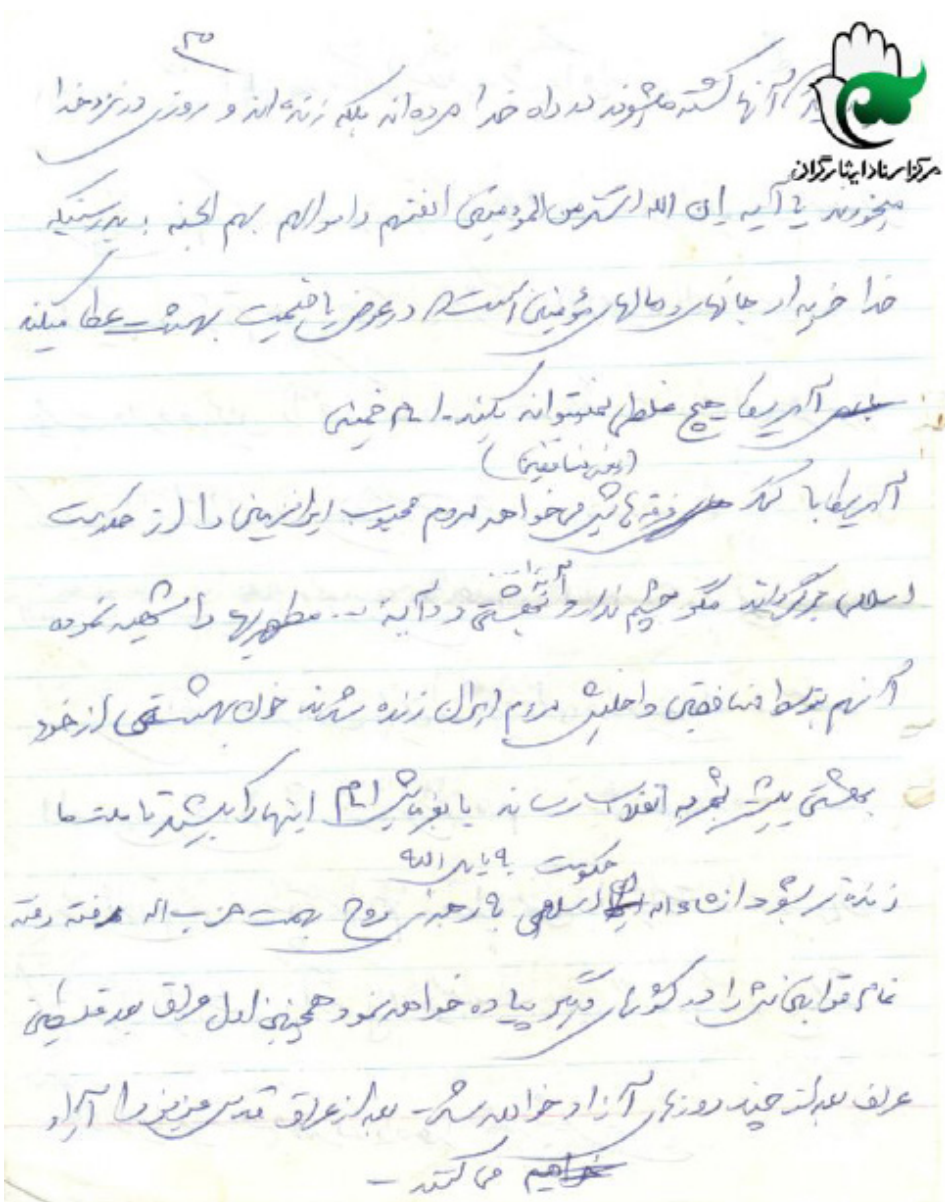 ۳
آنها کشته میشوند در راه خدا مرده‌اند بلکه زنده‌اند و روزی در نزد خدا
مرکز اسناد ایثارگران
میخورند یا آیه ان الله اشتری من المومنین انفسهم و اموالهم بهم الجنه : بدرستیکه
خدا خریدار جانهای و مالهای مؤمنین است در عوض با قیمت بهشت عطا میکند
آمریکا هیچ غلطی نمیتواند بکند - امام خمینی
(یعنی منافقین)
آمریکا با کمک فرقه‌هایش میخواهد مردم محبوب ایران را از حکومت
اسلامی برگرداند مگر چشم ندارد بهشتی و ... مطهریها را شهید نموده
آنهم توسط منافقین داخلیش مردم ایران زنده شدند خون بهشتی از خود
بهشتی بیشتر ثمر به انقلاب رساند یا بفرمایش امام اینها را بکشید تا ملت ما
حکومت
زنده‌تر بشود انشاءاله اسلامی به رهبری روح بهمت حزب اله رفته رفته
تمام قوانینش را در کشورهای دیگر پیاده خواهد نمود همچنین اول عراق بعد فلسطین
عراق بعد از چند روزهای آزاد خواهد شد - بعد از عراق قدس عزیز را آزاد
خواهیم می کنند -